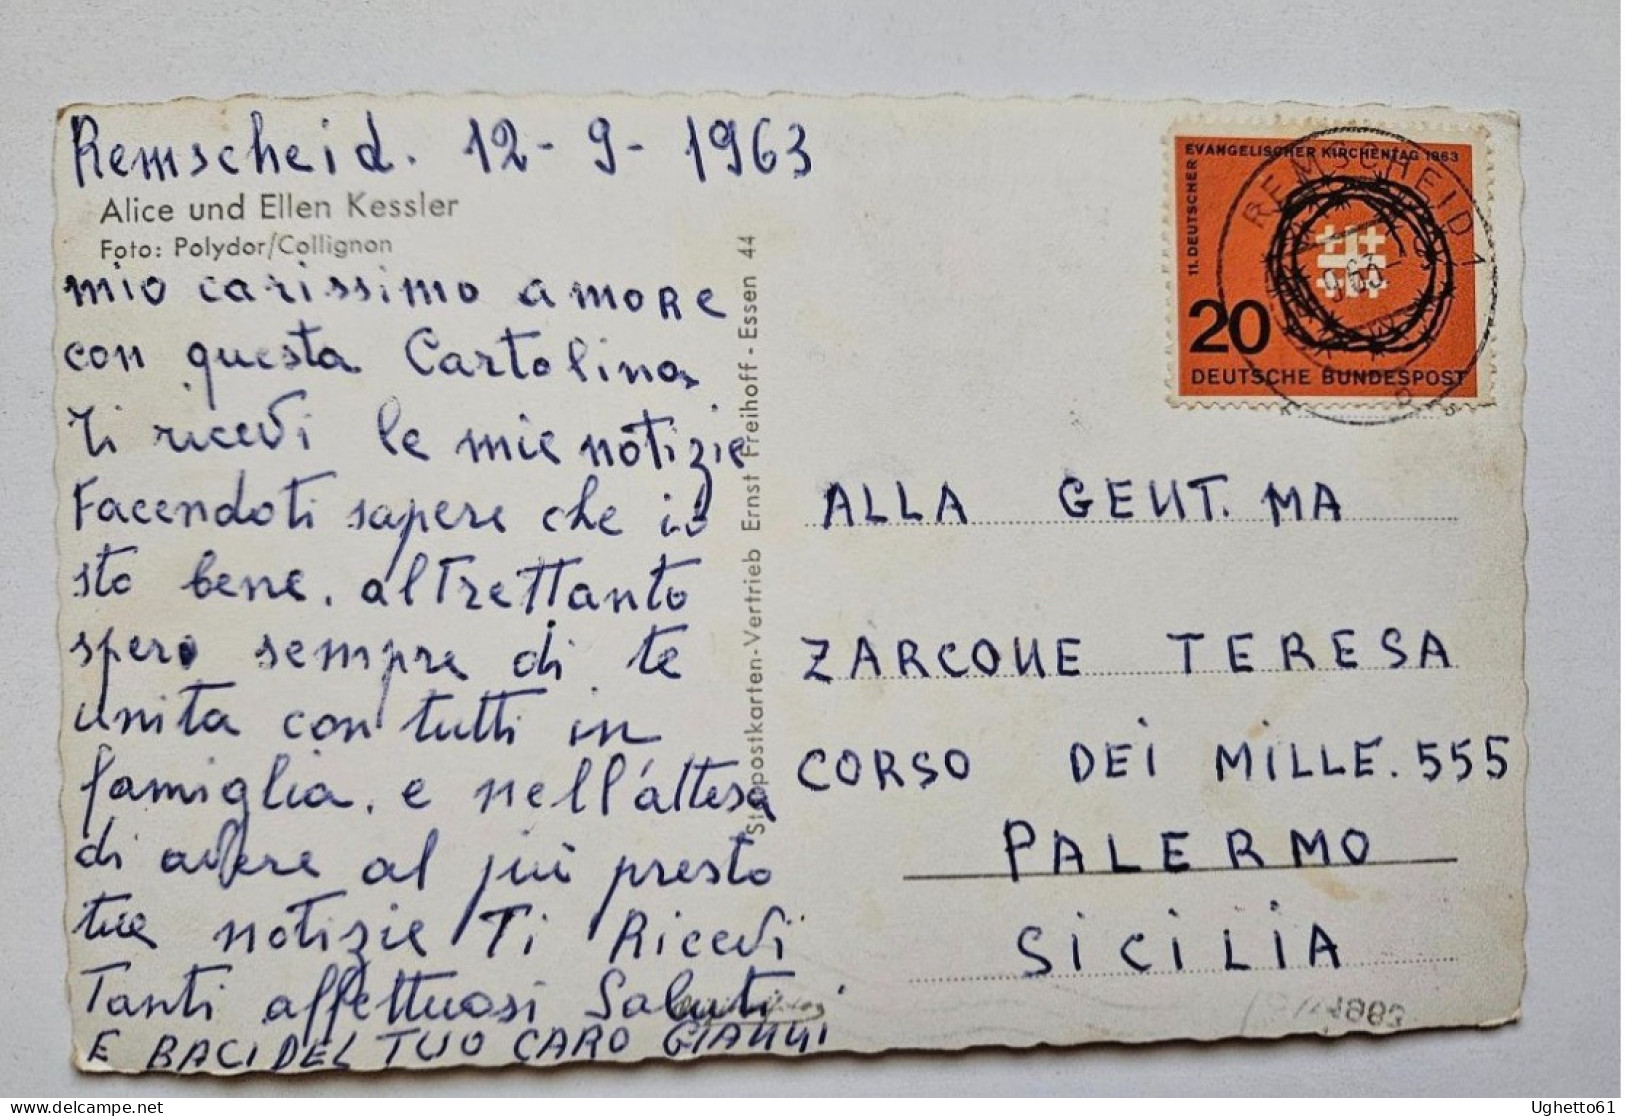 Remscheid. 12-9-1963
Alice und Ellen Kessler
Foto: Polydor/Collignon
mio carissimo amore
con questa Cartolina
Ti ricevi le mie notizie
Facendoti sapere che io
sto bene. altrettanto
spero sempre di te
unita con tutti in
famiglia. e nell'attesa
di avere al piú presto
tue notizie Ti Ricevi
Tanti affettuosi Saluti
E BACI DEL TUO CARO GIANNI
Starpostkarten-Vertrieb Ernst Freihoff - Essen 44
11. DEUTSCHER
EVANGELISCHER KIRCHENTAG 1963
20
DEUTSCHE BUNDESPOST
REMSCHEID 1
ALLA GENT. MA
ZARCONE TERESA
CORSO DEI MILLE. 555
PALERMO
SICILIA
Ughetto61
delcampe.net